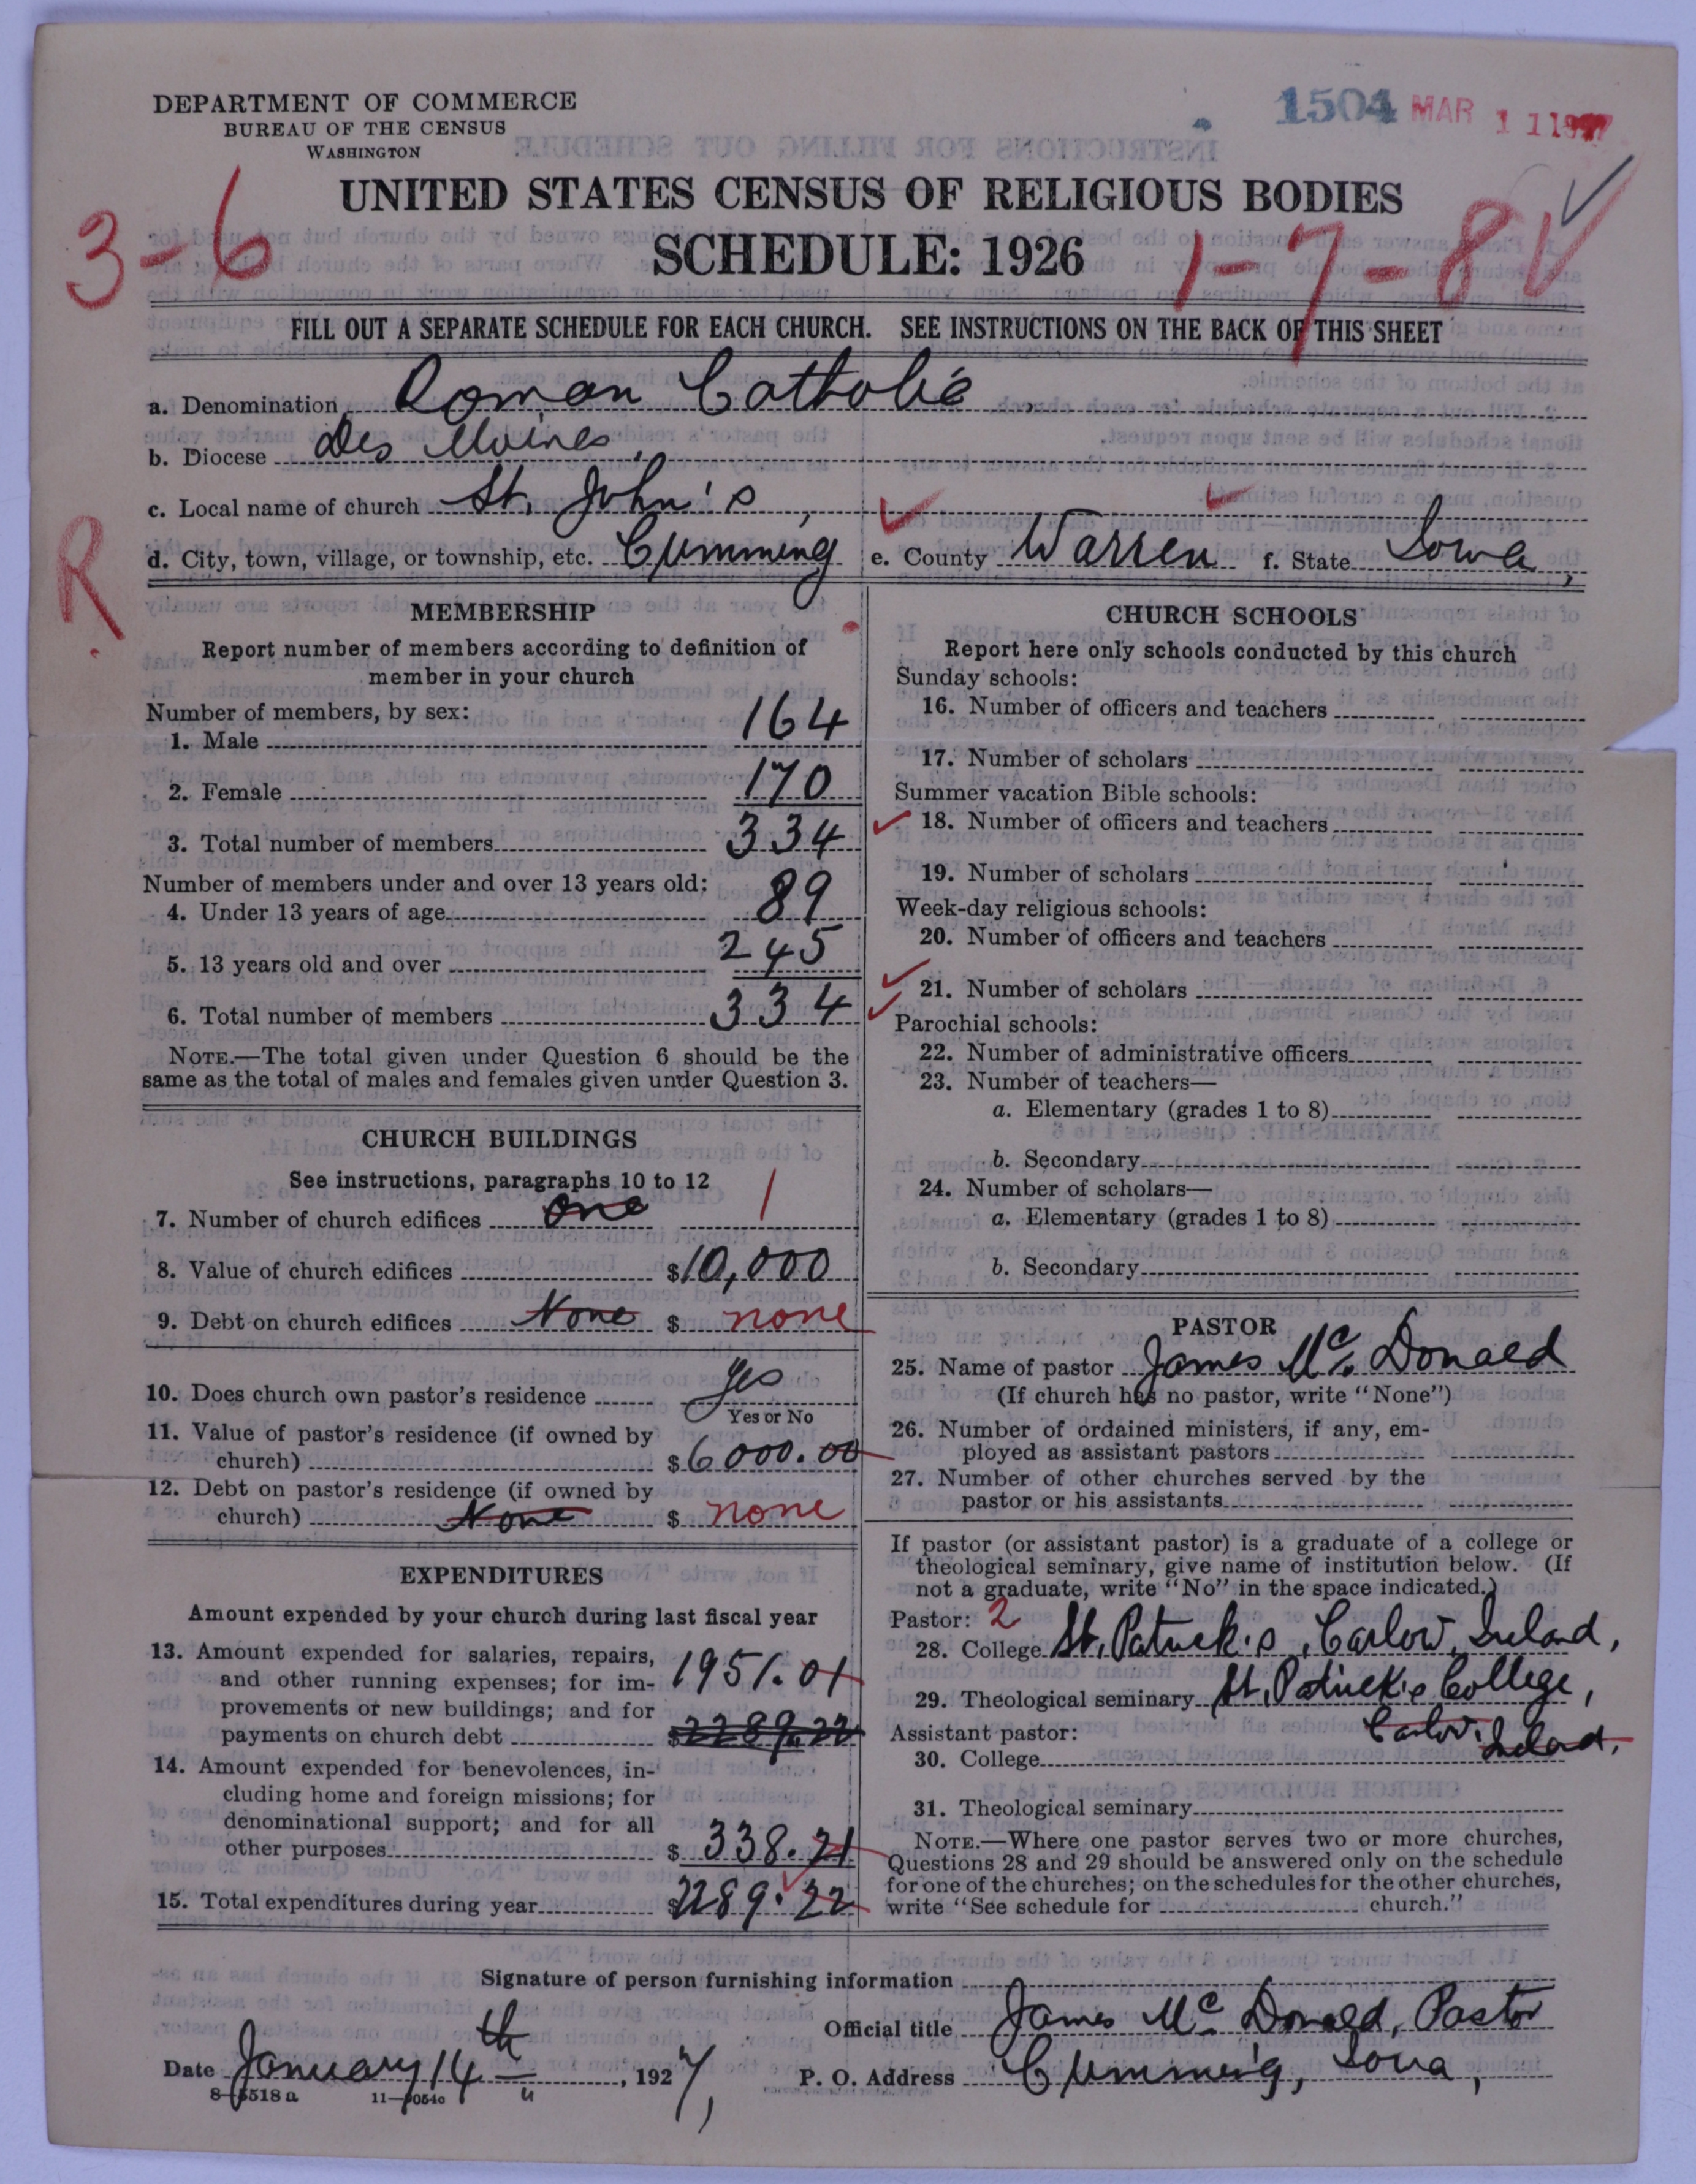 DEPARTMENT OF COMMERCE
BUREAU OF THE CENSUS
WASHINGTON
1504 MAR 11 1927
UNITED STATES CENSUS OF RELIGIOUS BODIES
SCHEDULE: 1926
3-6
1-7-8
FILL OUT A SEPARATE SCHEDULE FOR EACH CHURCH. SEE INSTRUCTIONS ON THE BACK OF THIS SHEET
a. Denomination Roman Catholic
b. Diocese Des Moines,
c. Local name of church St. John's,
d. City, town, village, or township, etc. Cumming e. County Warren f. State Iowa,
R
MEMBERSHIP
Report number of members according to definition of
member in your church
Number of members, by sex:
1. Male 164
2. Female 170
3. Total number of members 334
Number of members under and over 13 years old:
4. Under 13 years of age 89
5. 13 years old and over 245
6. Total number of members 334
NOTE.—The total given under Question 6 should be the
same as the total of males and females given under Question 3.
CHURCH BUILDINGS
See instructions, paragraphs 10 to 12
7. Number of church edifices one 1
8. Value of church edifices $10,000
9. Debt on church edifices None $ none
10. Does church own pastor's residence Yes
Yes or No
11. Value of pastor's residence (if owned by
church) $6000.00
12. Debt on pastor's residence (if owned by
church) None $ none
EXPENDITURES
Amount expended by your church during last fiscal year
13. Amount expended for salaries, repairs,
and other running expenses; for im-
provements or new buildings; and for
payments on church debt 1951.01
$2289.22
14. Amount expended for benevolences, in-
cluding home and foreign missions; for
denominational support; and for all
other purposes $ 338.21
15. Total expenditures during year $2289.22
CHURCH SCHOOLS
Report here only schools conducted by this church
Sunday schools:
16. Number of officers and teachers
17. Number of scholars
Summer vacation Bible schools:
18. Number of officers and teachers
19. Number of scholars
Week-day religious schools:
20. Number of officers and teachers
21. Number of scholars
Parochial schools:
22. Number of administrative officers
23. Number of teachers—
a. Elementary (grades 1 to 8)
b. Secondary
24. Number of scholars—
a. Elementary (grades 1 to 8)
b. Secondary
PASTOR
25. Name of pastor James Mc. Donald
(If church has no pastor, write "None")
26. Number of ordained ministers, if any, em-
ployed as assistant pastors
27. Number of other churches served by the
pastor or his assistants
If pastor (or assistant pastor) is a graduate of a college or
theological seminary, give name of institution below. (If
not a graduate, write "No" in the space indicated.)
Pastor: 2
28. College St. Patrick's, Carlow, Ireland,
29. Theological seminary St. Patrick's College,
Carlow, Ireland.
Assistant pastor:
30. College
31. Theological seminary
NOTE.—Where one pastor serves two or more churches,
Questions 28 and 29 should be answered only on the schedule
for one of the churches; on the schedules for the other churches,
write "See schedule for church."
Signature of person furnishing information
Official title James Mc Donald, Pastor
Date January 14th, 1927, P. O. Address Cumming, Iowa,
8-5518 a